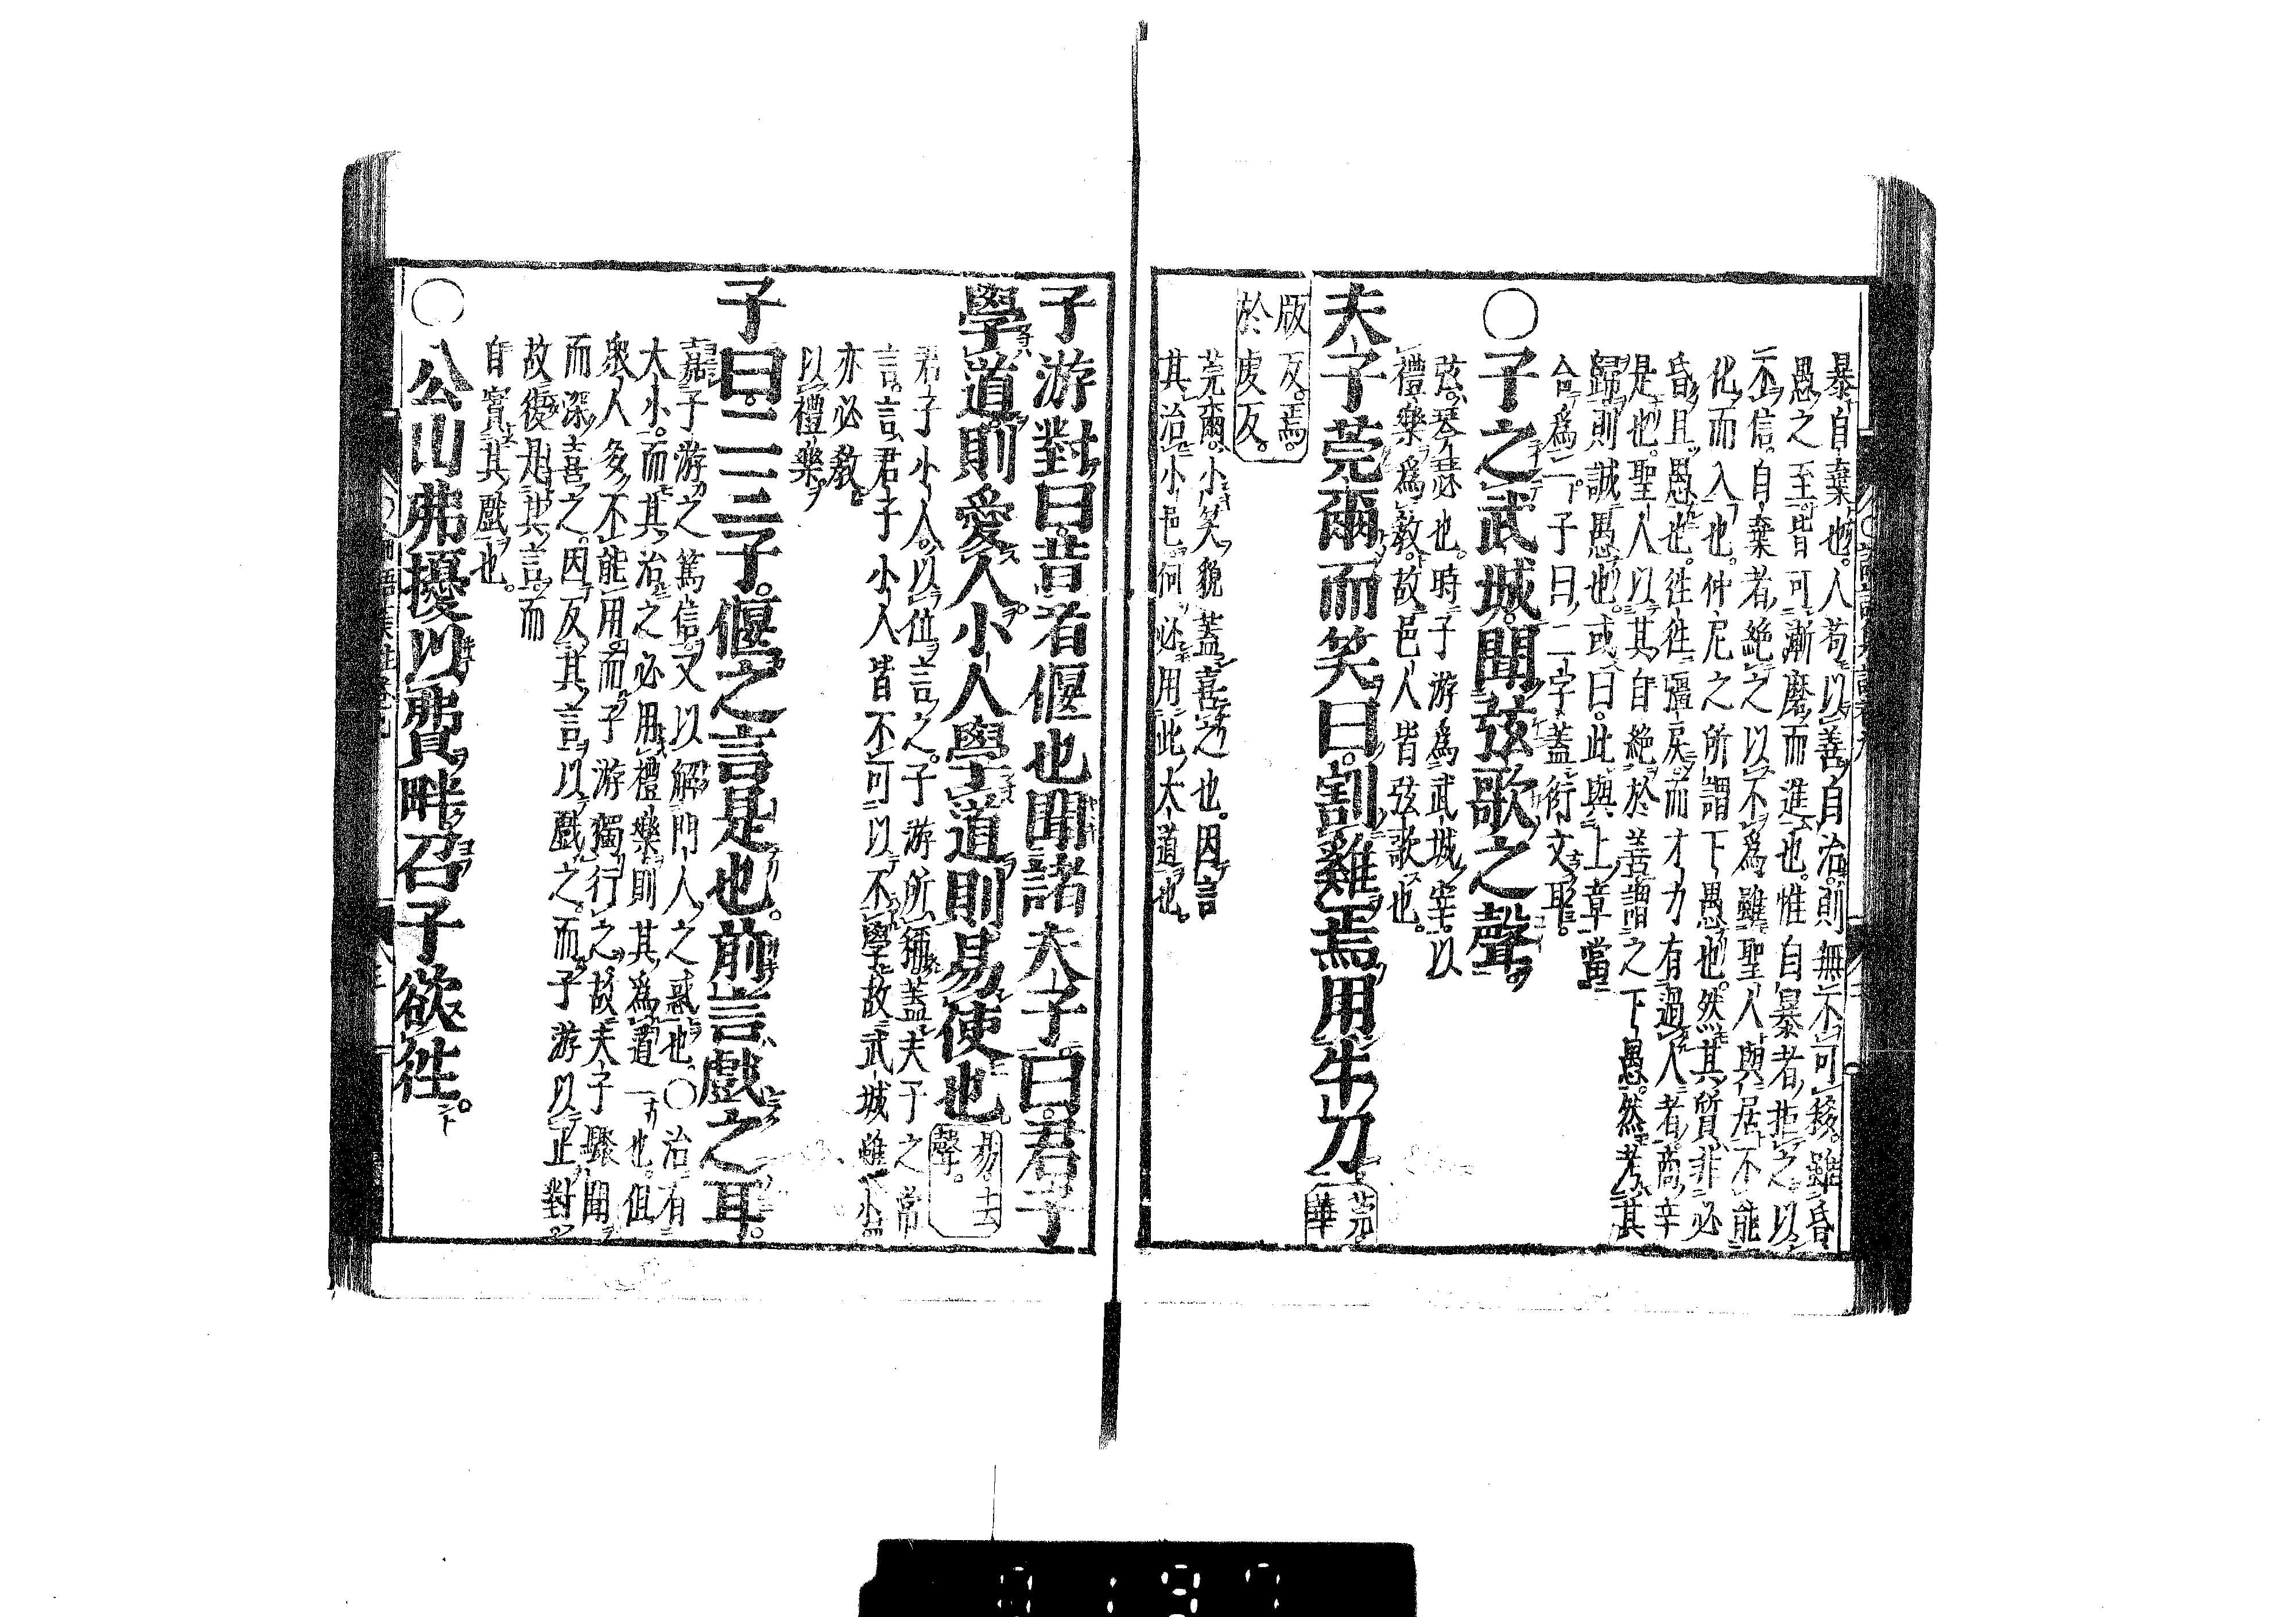 暴自棄也。人苟以善自治。則無不可移。雖昏
愚之至。皆可漸磨而進也。惟自暴者。拒之以
不信。自棄者。絶之以不爲。雖聖人與居。不能
化而入也。仲尼之所謂下愚也。然其質非必
昏且愚也。徃徃彊戾。而才力有過人者。商辛
是也。聖人以其自絶於善。謂之下愚。然考其
歸。則誠愚也。或曰。此與上章當
合爲一。子曰二字。蓋衍文耳。
○子之武城。聞弦歌之聲。
弦。琴瑟也。時子游爲武城宰。以
禮樂爲教。故邑人皆弦歌也。
夫子莞爾而笑曰。割雞焉用牛刀
莞華
版反。焉。
於虔反。
莞爾。小笑貌。蓋喜之也。因言
其治小邑。何必用此大道也。
子游對曰昔者偃也聞諸夫子。曰。君子
學道則愛人。小人學道則易使也
易。去
聲。
君子小人。以位言之。子游所稱。蓋夫子之常
言。言君子小人皆不可以不學。故武城雖小。
亦必教
以禮樂。
子曰。二三子。偃之言是也。前言戲之耳。
嘉子游之篤信。又以解門人之惑也。○治有
大小。而其治之必用禮樂。則其爲道一也。但
衆人多不能用。而子游獨行之。故夫子驟聞
而深喜之。因反其言以戲之。而子游以正對。
故復是其言。而
自實其戲也。
○公山弗擾以費畔召子欲徃。